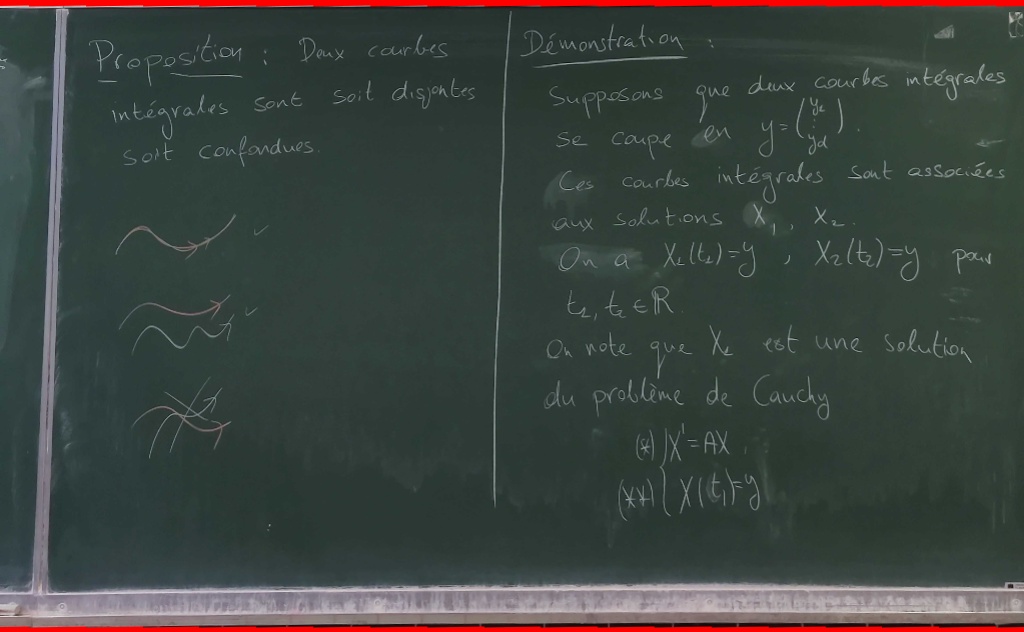 Proposition : Deux courbes
intégrales sont soit disjontes
soit confondues.
Démonstration :
Supposons que deux courbes intégrales
se coupe en y=(y₁ ⋮ yd).
Ces courbes intégrales sont associées
aux solutions X₁, X₂.
On a X₁(t₁)=y, X₂(t₂)=y pour
t₁, t₂ ∈ ℝ.
On note que X₁ est une solution
du problème de Cauchy
(*) { X'=AX,
(**) { X(t₁)=y